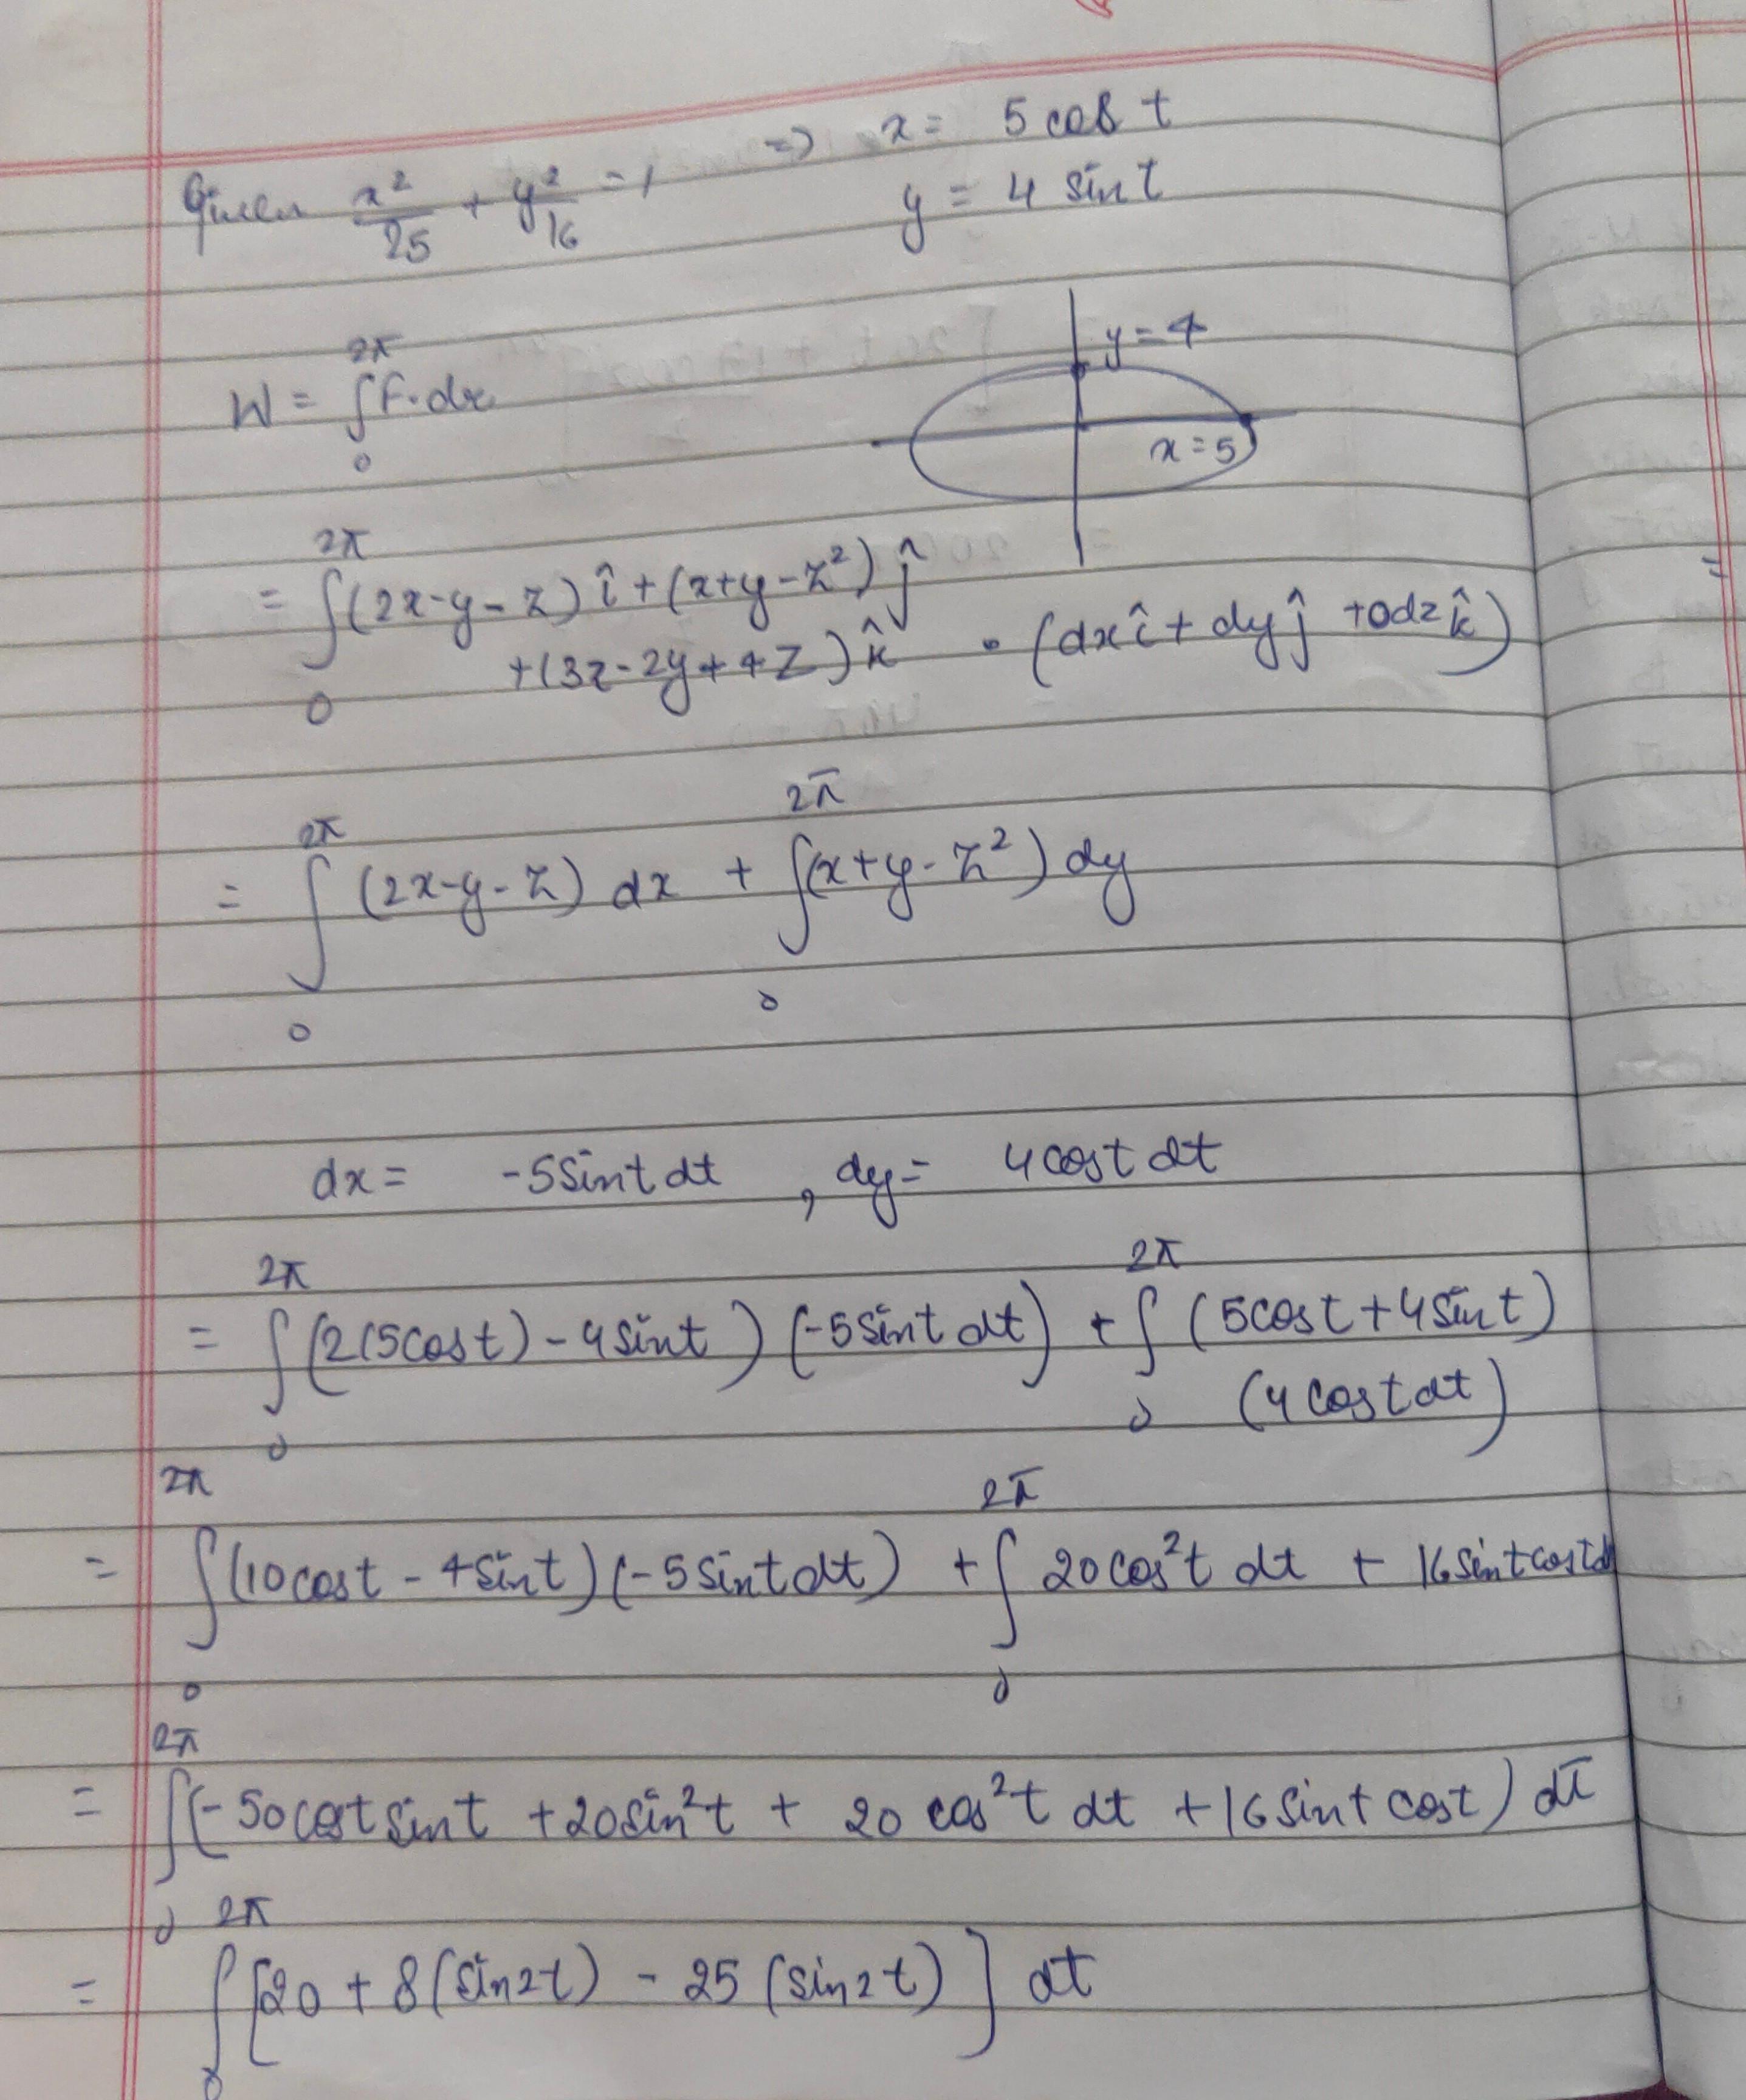 Given x²/25 + y²/16 = 1 => x = 5 cos t
y = 4 sin t
y = 4
W = ∫₀^2π F · dr
x = 5
= ∫₀^2π (2x-y-z) î + (x+y-z²) ĵ
+ (3x-2y+4z) k̂ · (dx î + dy ĵ + 0dz k̂)
= ∫₀^2π (2x-y-z) dx + ∫₀^2π (x+y-z²) dy
dx = -5 sin t dt , dy = 4 cos t dt
= ∫₀^2π (2(5cos t) - 4 sin t) (-5 sin t dt) + ∫₀^2π (5cos t + 4 sin t)
(4 cos t dt)
= ∫₀^2π (10 cos t - 4 sin t) (-5 sin t dt) + ∫₀^2π 20 cos² t dt + 16 sin t cos t dt
= ∫₀^2π (-50 cos t sin t + 20 sin² t + 20 cos² t dt + 16 sin t cos t) dt
= ∫₀^2π [20 + 8 (sin 2t) - 25 (sin 2t)] dt